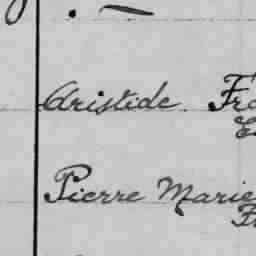 Aristide Fra
Pierre Marie